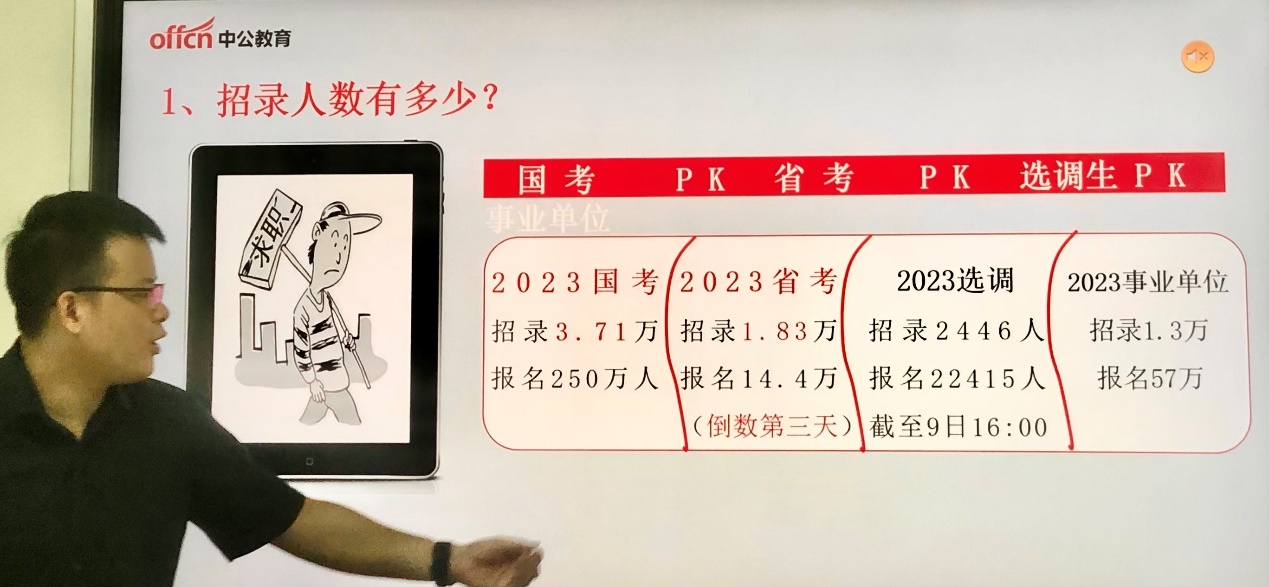 offcn 中公教育
1、招录人数有多少？
求职
国考 PK 省考 PK 选调生 PK
事业单位
2023国考
招录3.71万
报名250万人
2023省考
招录1.83万
报名14.4万
（倒数第三天）
2023选调
招录2446人
报名22415人
截至9日16:00
2023事业单位
招录1.3万
报名57万